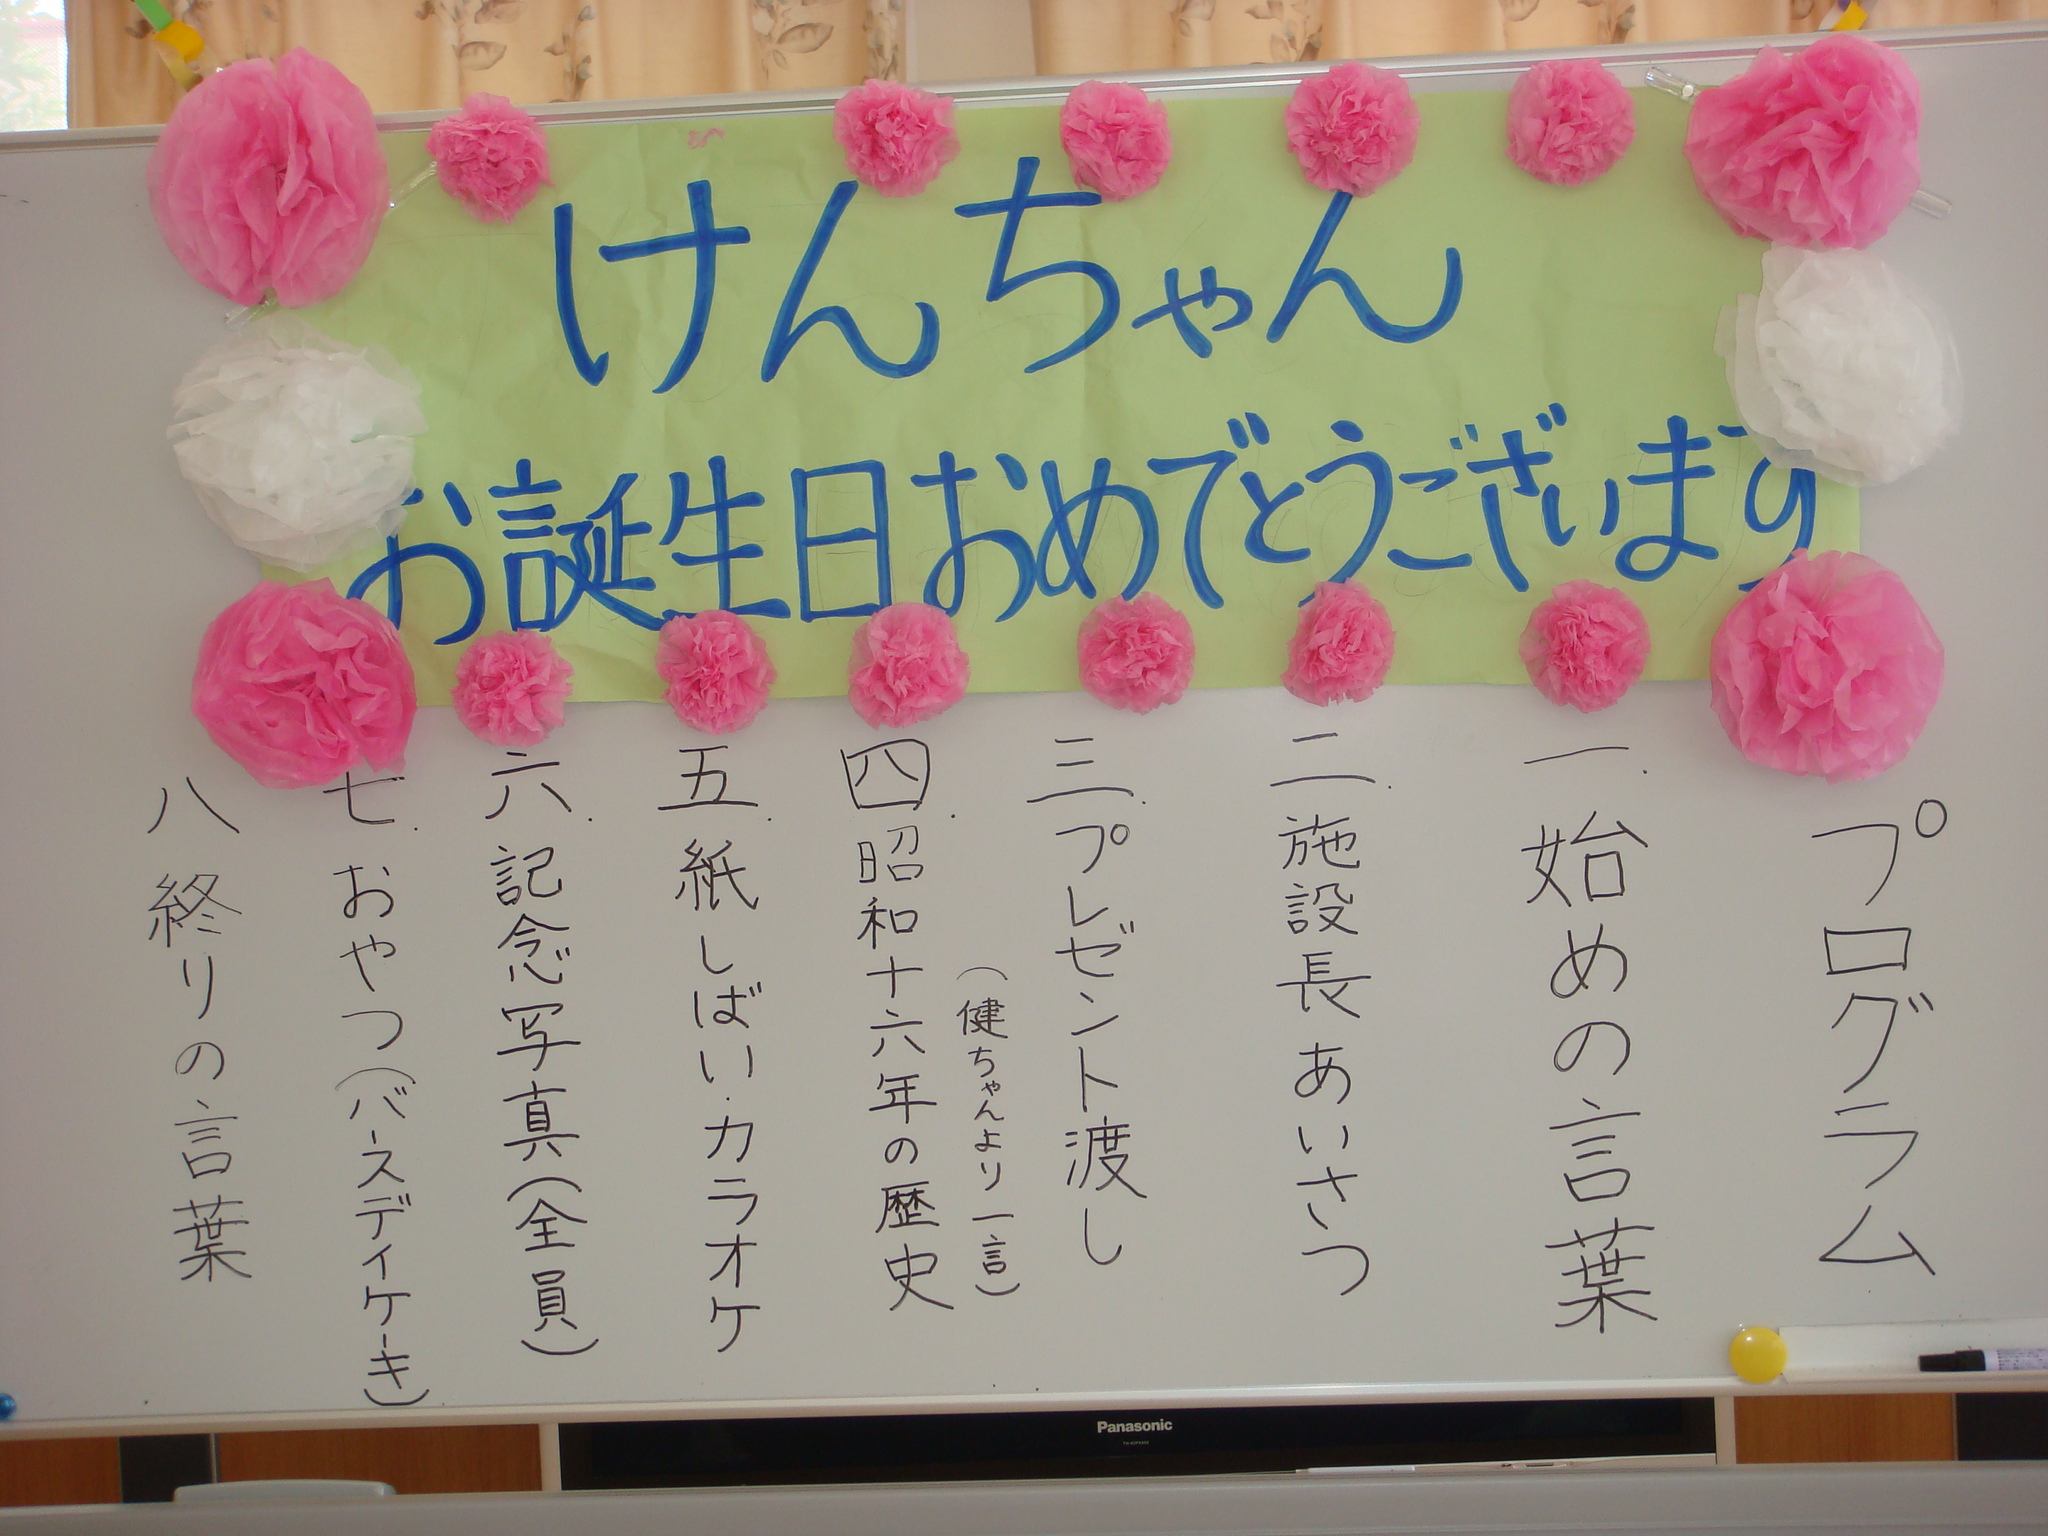 けんちゃん
お誕生日おめでとうございます
プログラム
一.始めの言葉
二.施設長あいさつ
三.プレゼント渡し
(健ちゃんより一言)
四.昭和十六年の歴史
五.紙しばい・カラオケ
六.記念写真(全員)
七.おやつ(バースディケーキ)
八終りの言葉
Panasonic